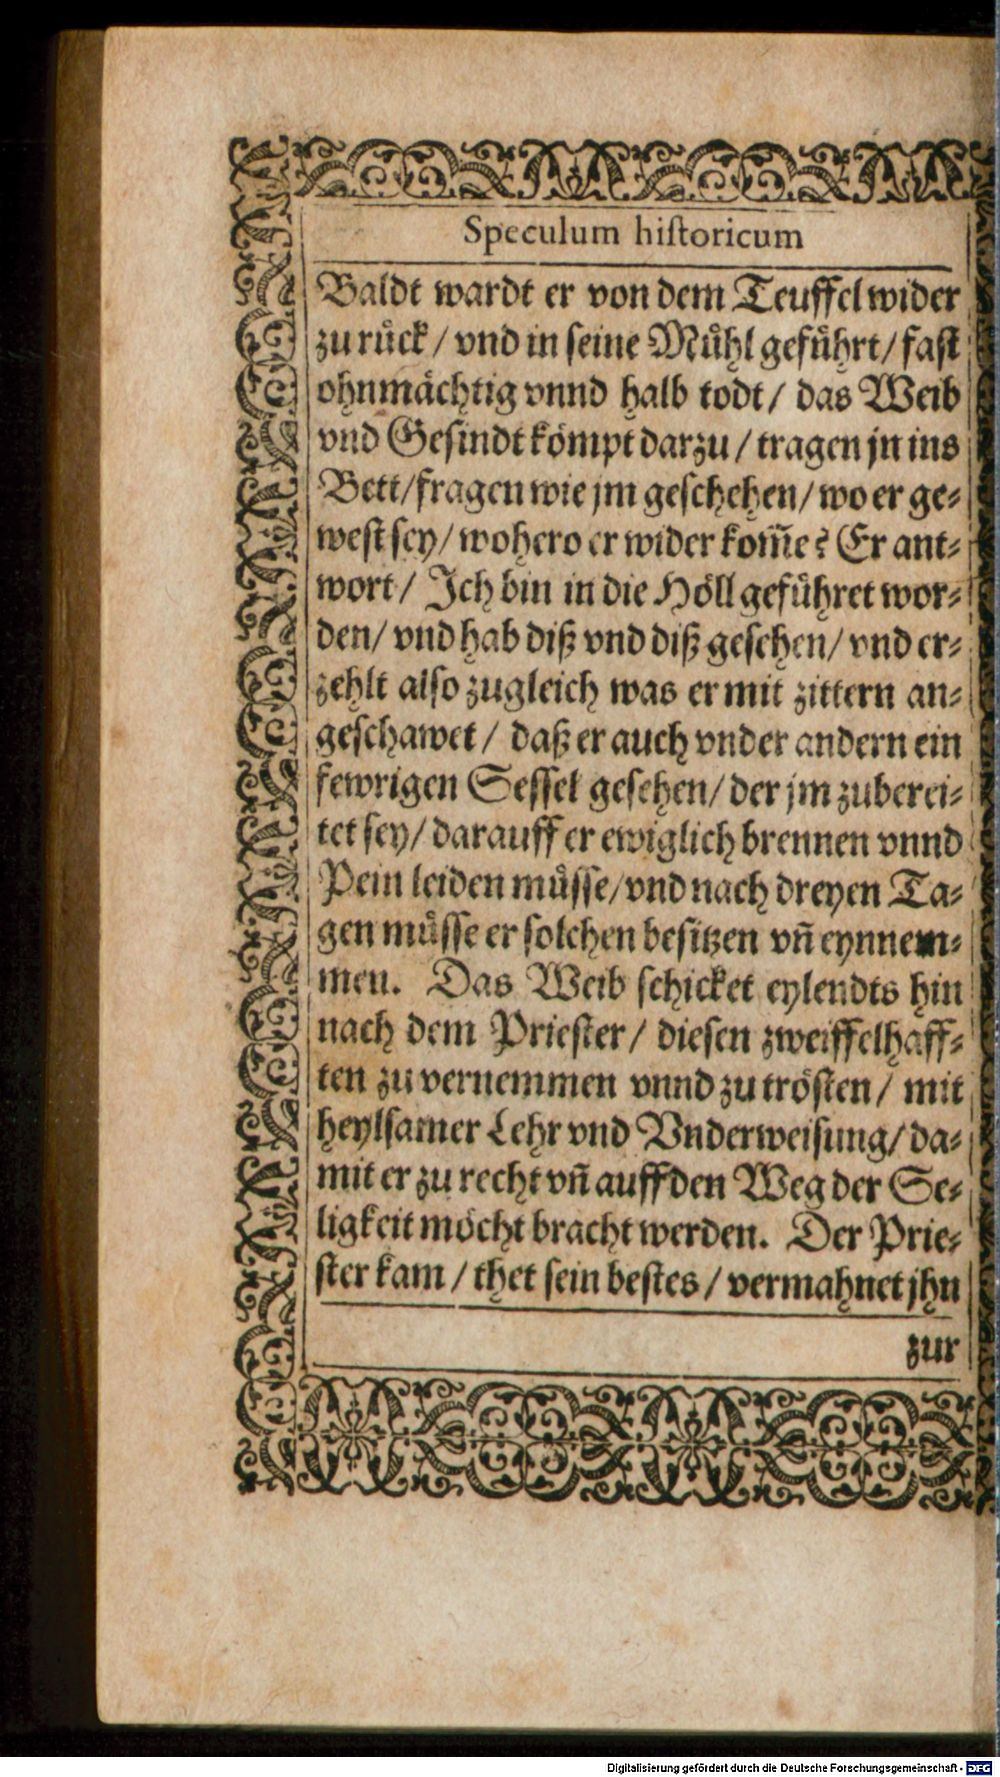 Speculum hiſtoricum
Baldt wardt er von dem Teuffel wider
zu ruͤck / vnd in ſeine Muͤhl gefuͤhrt / faſt
ohnmaͤchtig vnnd halb todt / das Weib
vnd Geſindt koͤmpt darzu / tragen jn ins
Bett / fragen wie jm geſchehen / wo er ge⸗
weſt ſey / wohero er wider kom̃e? Er ant⸗
wort / Ich bin in die Hoͤll gefuͤhret wor⸗
den / vnd hab diß vnd diß geſehen / vnd er⸗
zehlt alſo zugleich was er mit zittern an⸗
geſchawet / daß er auch vnder andern ein
fewrigen Seſſel geſehen / der jm zuberei⸗
tet ſey / darauff er ewiglich brennen vnnd
Pein leiden muͤſſe / vnd nach dreyen Ta⸗
gen muͤſſe er ſolchen beſitzen vñ eynnem⸗
men. Das Weib ſchicket eylendts hin
nach dem Prieſter / dieſen zweiffelhaff⸗
ten zu vernemmen vnnd zu troͤſten / mit
heylſamer Lehr vnd Vnderweiſung / da⸗
mit er zu recht vñ auff den Weg der Se⸗
ligkeit moͤcht bracht werden. Der Prie⸗
ſter kam / thet ſein beſtes / vermahnet jhn
zur
Digitalisierung gefördert durch die Deutsche Forschungsgemeinschaft - DFG